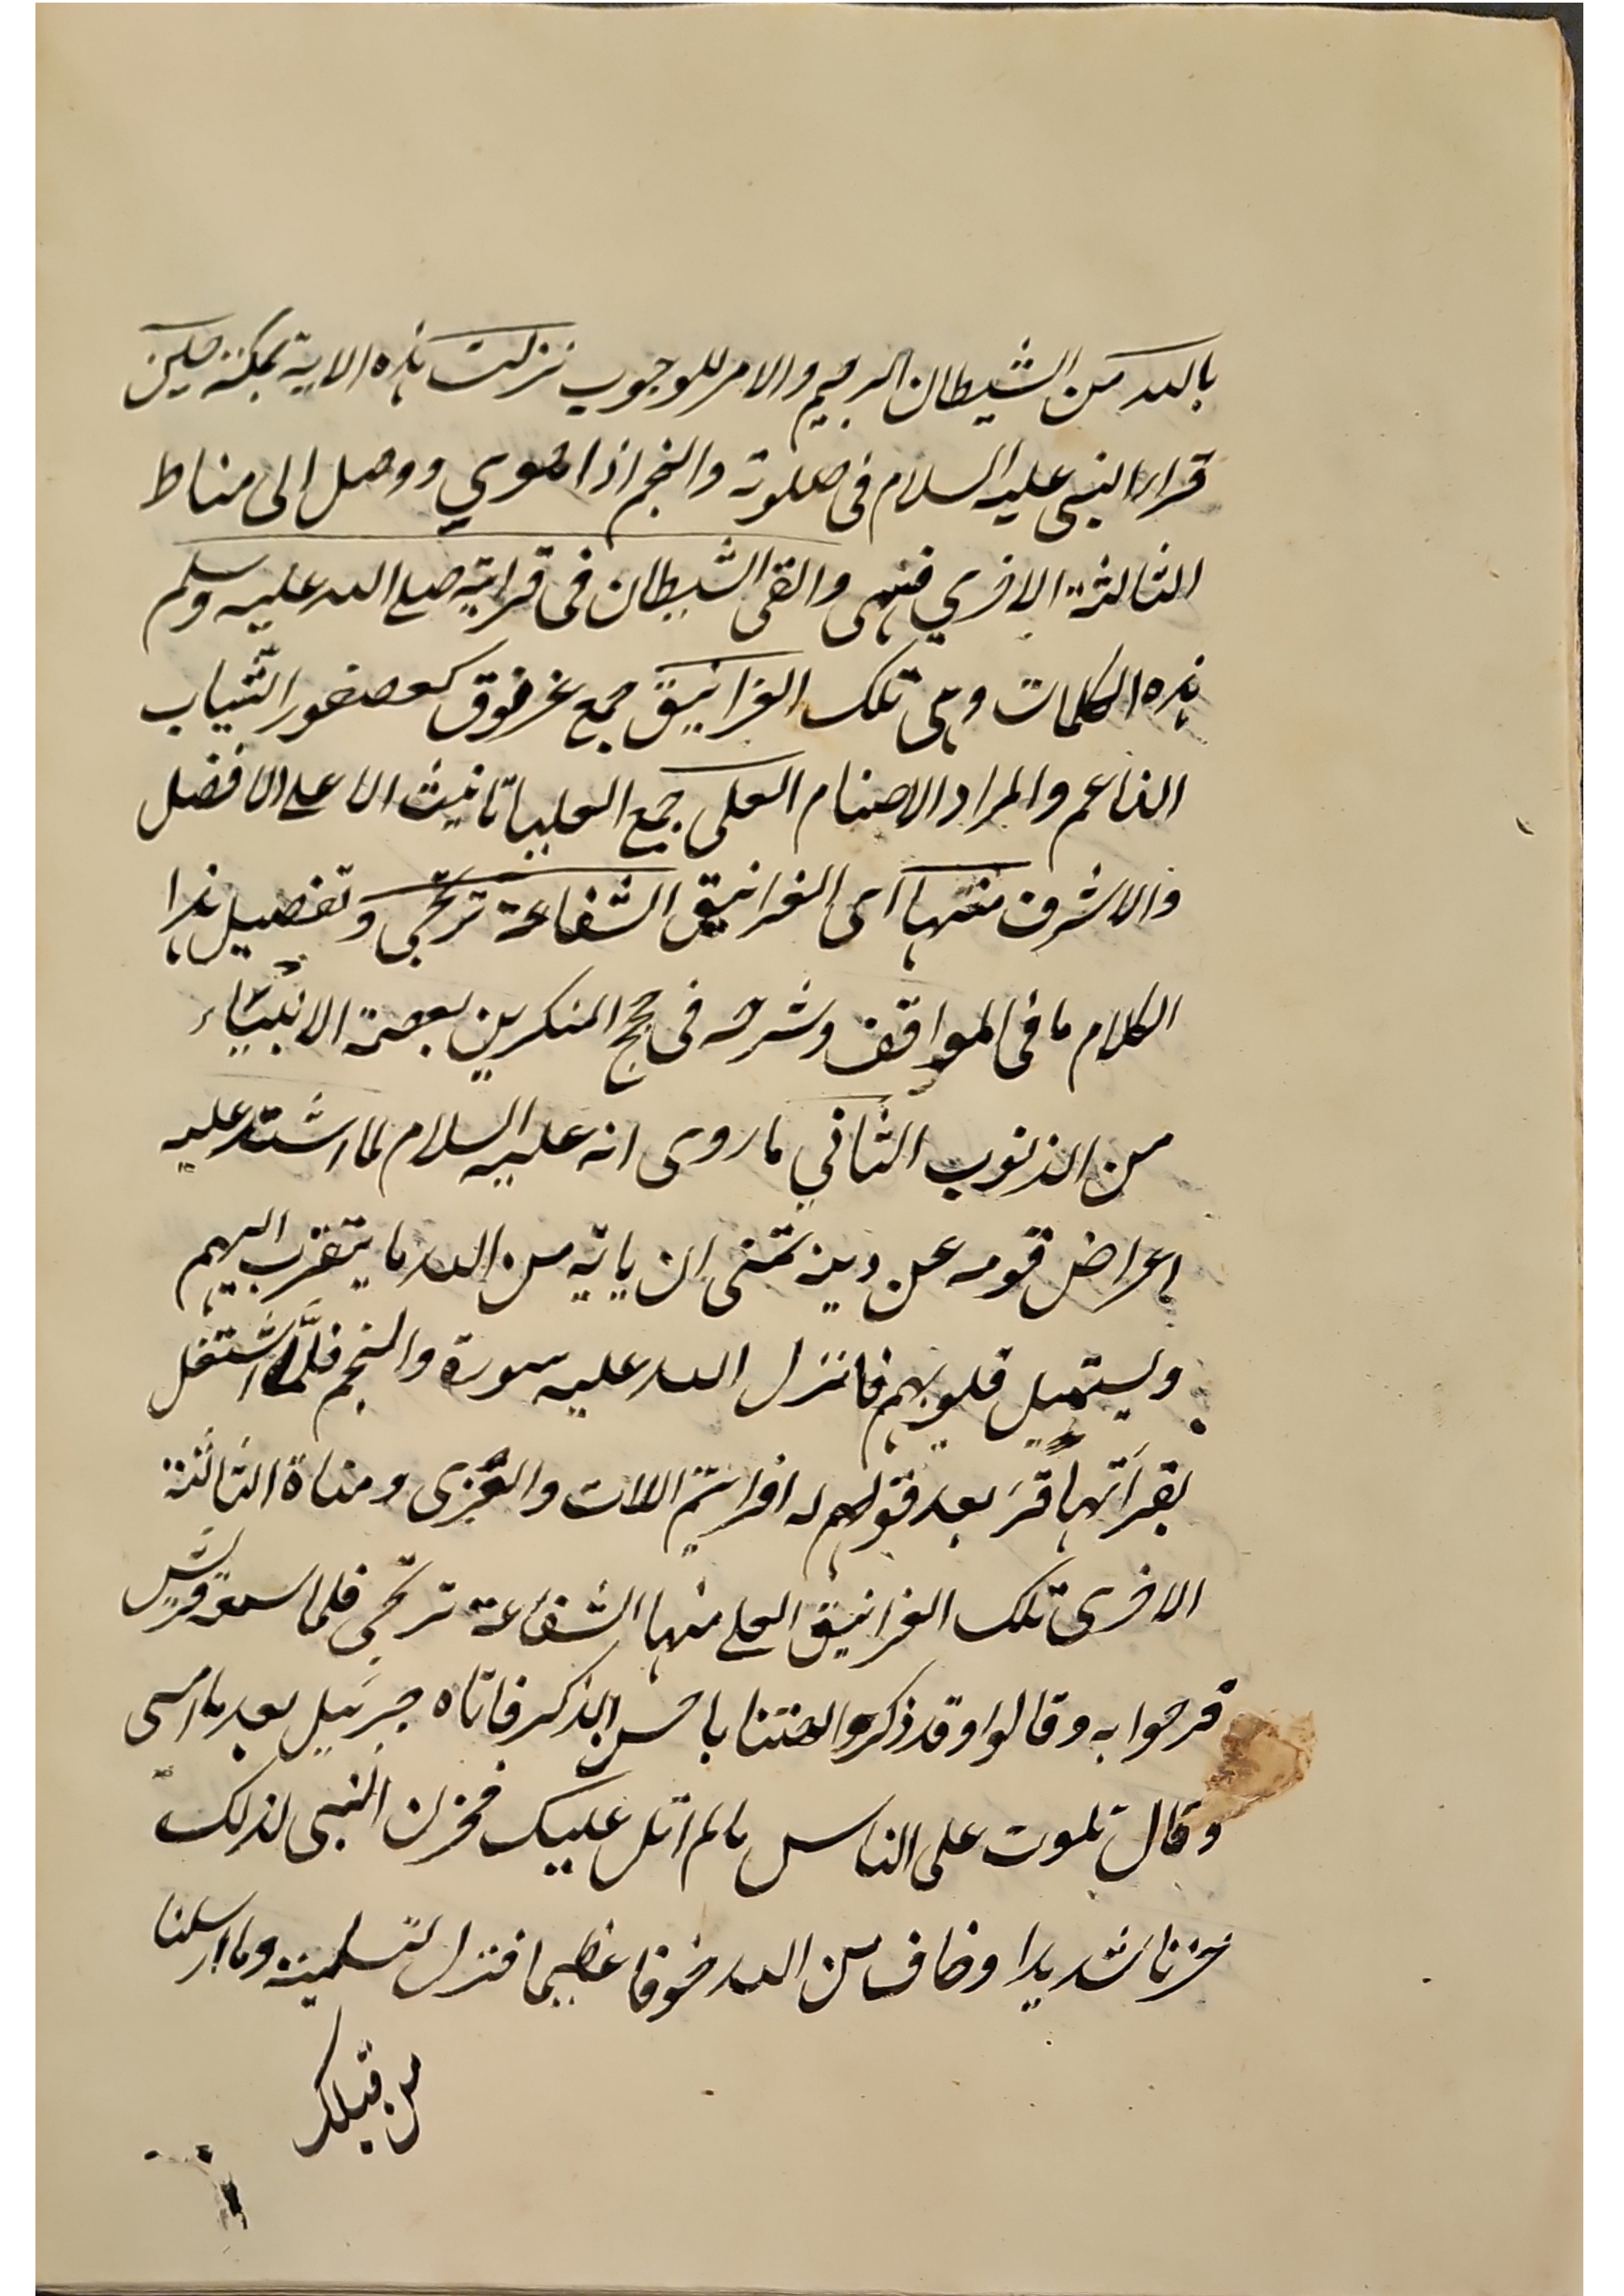 بالله من الشيطان الرجيم والامر للوجوب نزلت هذه الاية بمكة حين
قرا النبى عليه السلام فى صلوته والنجم اذا هوي ووصل الى مناط
الثالثة الاخري فسهى والقى الشيطان فى قرايته صلى الله عليه وسلم
هذه الكلمات وهى تلك الغرانيق جمع غرنوق كعصفور الشياب
الناعم والمراد الاصنام العلى جمع العليا تانيث الاعلى الافضل
والاشرف منها اى الغرانيق الشفاعة ترتجى وتفصيل هذا
الكلام ما فى المواقف وشرحه فى حجج المنكرين بعصمة الانبياء
من الذنوب الثاني ما روى انه عليه السلام لما اشتد عليه
اعراض قومه عن دينه تمنى ان ياتيه من الله ما يتقرب اليهم
ويستميل قلوبهم فانزل الله عليه سورة والنجم فلما اشتغل
بقرأتها قرَ بعد قوله افرايتم اللات والعزى ومناة الثالثة
الاخرى تلك الغرانيق العلى منها الشفاعة ترتجى فلما سمعه قريش
فرحوا به وقالوا وقد ذكر الهتنا باحسن الذكر فاتاه جبرئيل بعد ما امسى
وقال تلوت على الناس ما لم اتل عليك فحزن النبى لذلك
حزنا شديدا وخاف من الله خوفا عظيما فنزل لتسلية وما ارسلنا
من قبلك